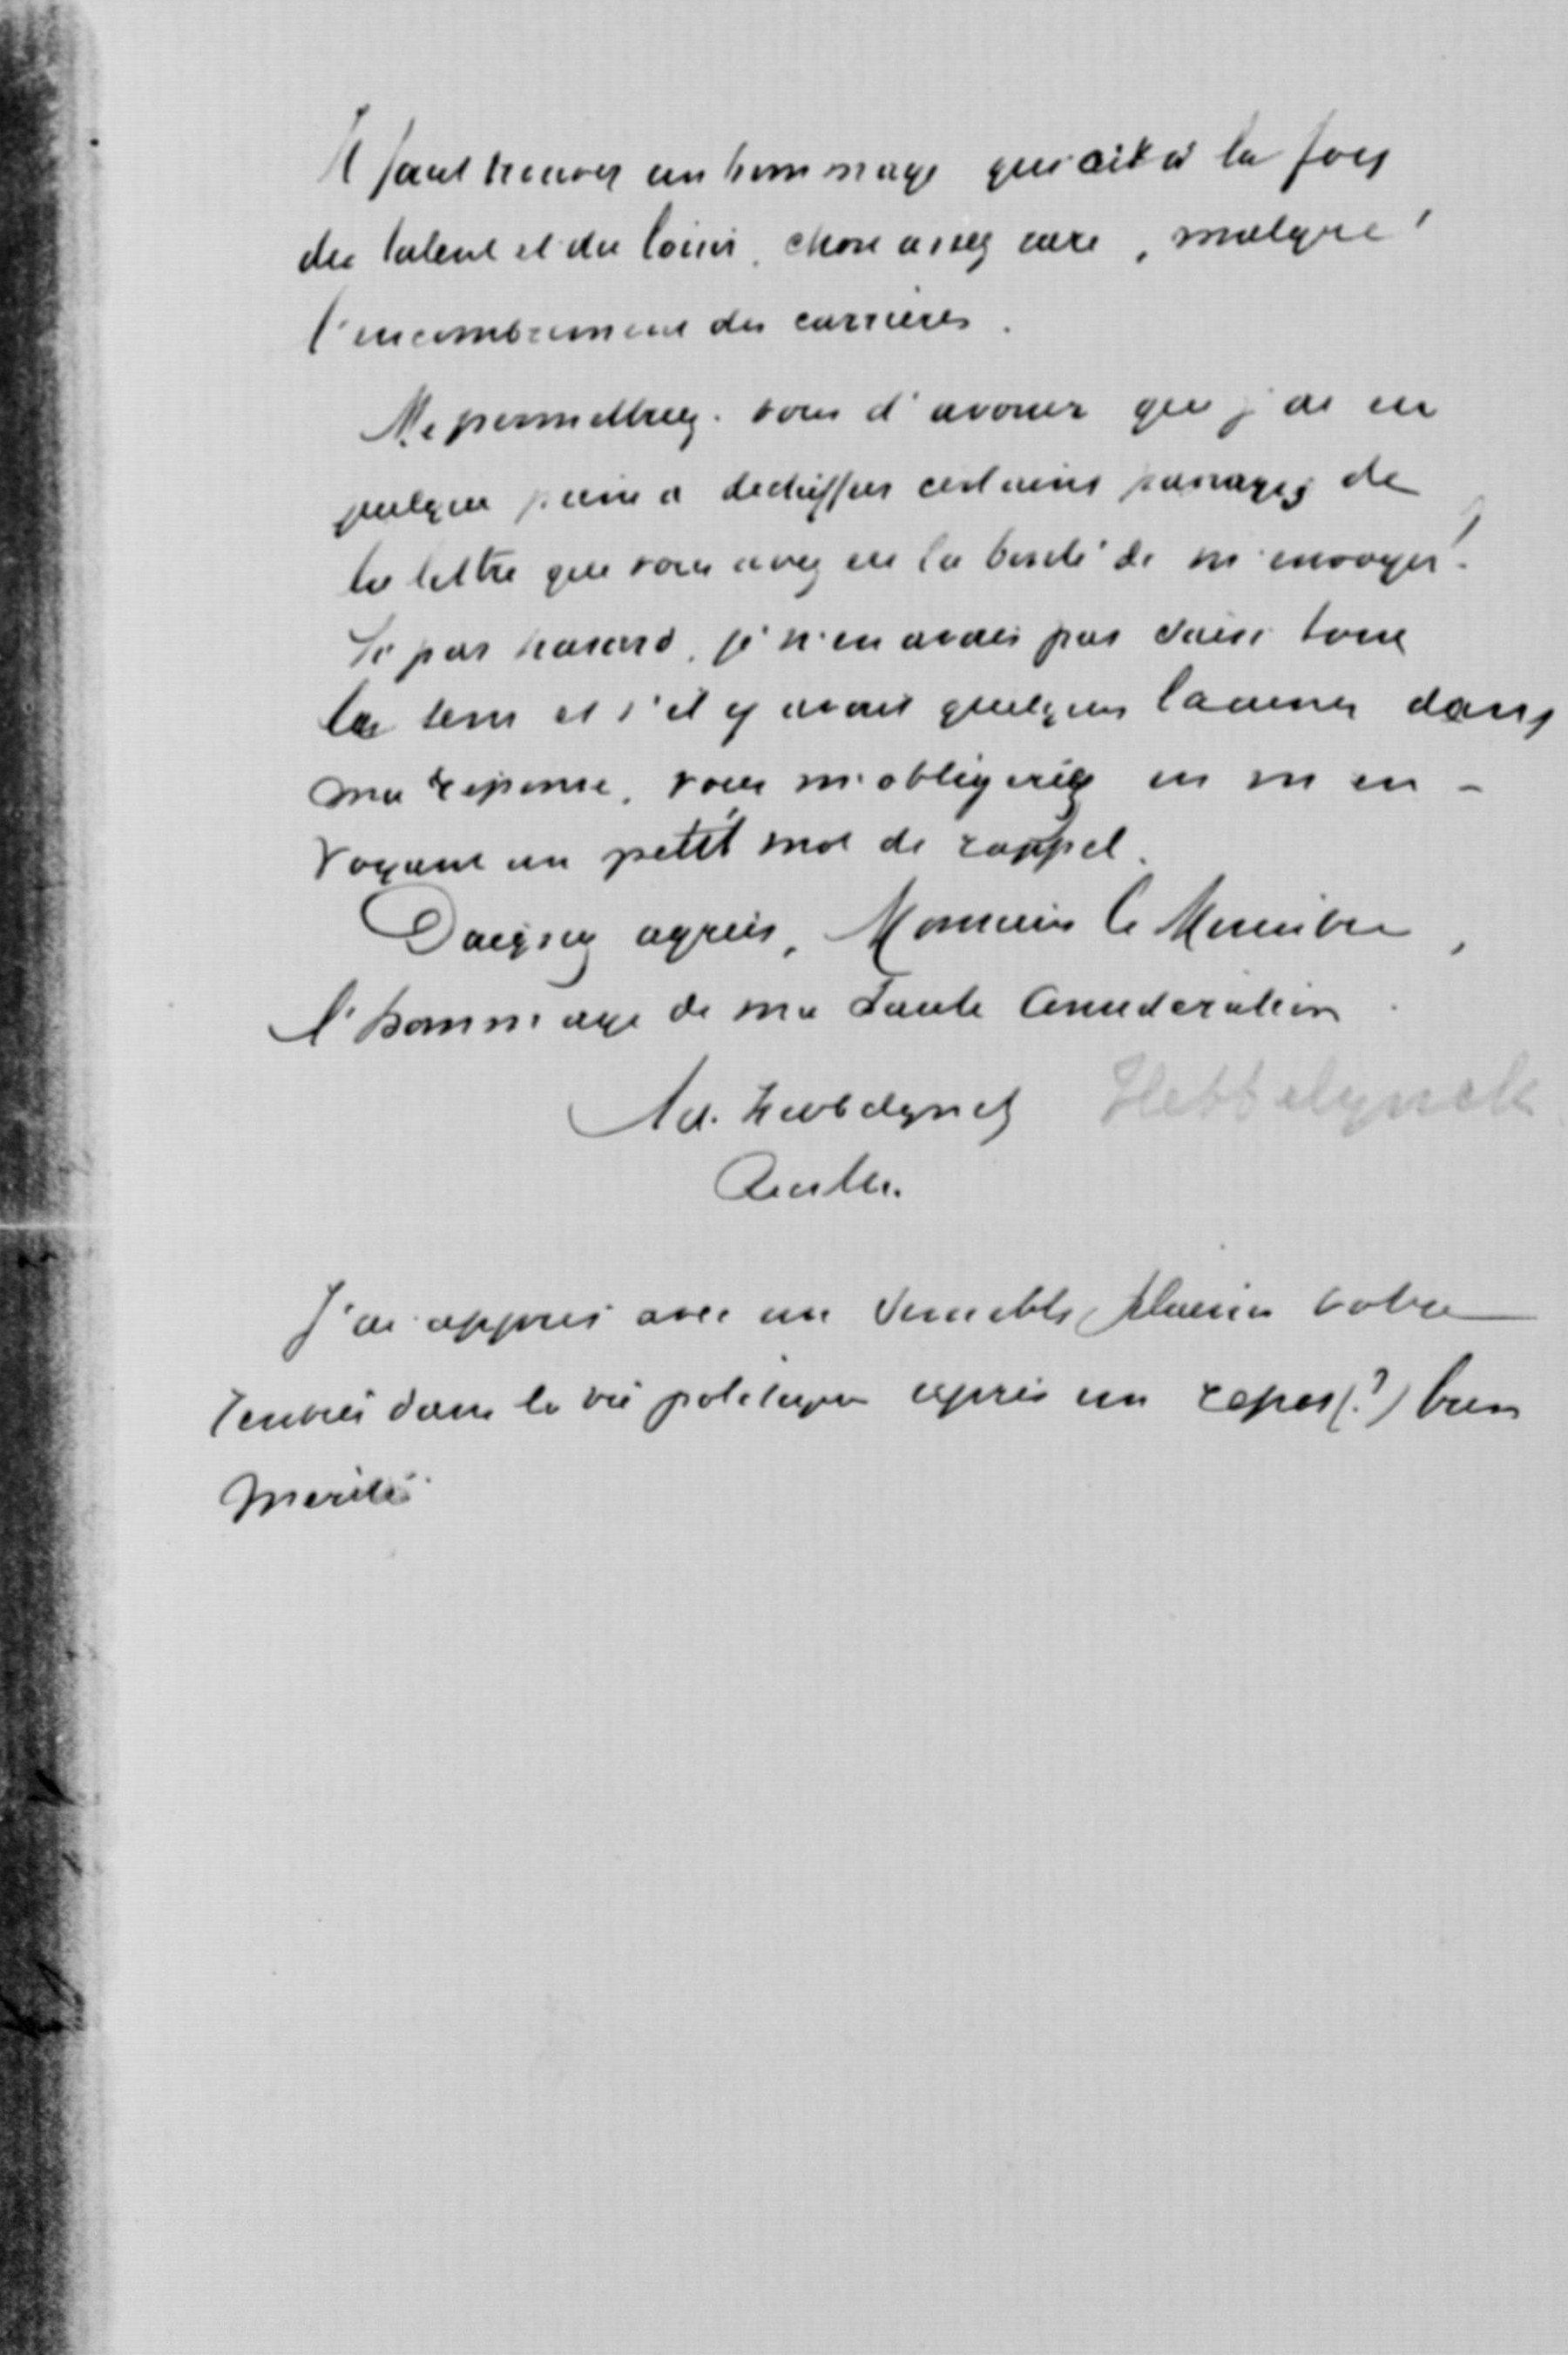 Il faut trouver un hommage qui ait à la fois
du talent et du loisir, chose assez rare, malgré
l'encombrement des carrières.
Me permettrez-vous d'avouer que j'ai eu
quelque peine a dechiffrer certains passages de
la lettre que vous avez eu la bonté de m'envoyer!
Si par hasard, je n'en avais pas saisi tout
le sens et s'il y avait quelques lacunes dans
ma réponse, vous m'obligeriez en m'en-
voyant un petit mot de rappel.
Daignez agréer, Monsieur le Ministre,
l'hommage de ma haute consideration.
Ad. Hebbelynck Hebbelynck
J'ai appris avec un veritable plaisir votre
rentrée dans la vie politique après un repos (?) bien
mérité